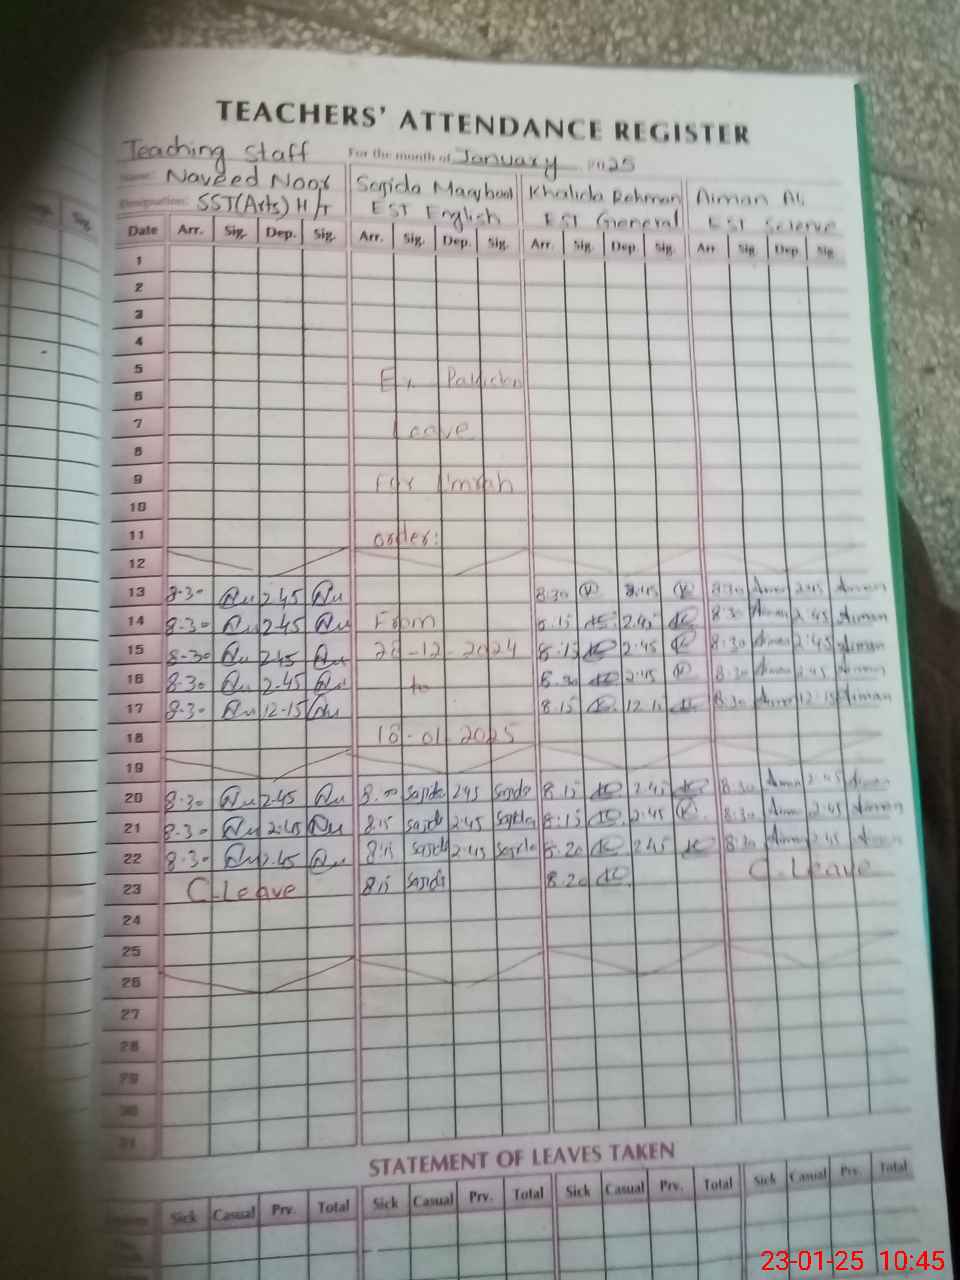 TEACHERS' ATTENDANCE REGISTER
Teaching Staff For the month of January 2025
Name: Naveed Noor Sajida Khalida Rehman Aiman Ali
Designation: SST(Arts) H/T EST English EST General EST Science
Date Arr. Sig. Dep. Sig. Arr. Sig. Dep. Sig. Arr. Sig. Dep. Sig. Arr Sig. Dep. Sig.
1
2
3
4
5 Ex Pakistan
6
7 Leave
8
9 For Umrah
10
11 order:
12
13 8-30 2.45 8.30 8:30 Aiman 2:45 Aiman
14 8-30 2.45 From 8.15 2.45 8:30 Aiman 2:45 Aiman
15 8-30 2.45 -12-2024 8.15 2.45 8:30 Aiman 2:45 Aiman
16 8-30 2-45 to 8.30 2.45 8:30 Aiman 2:45 Aiman
17 8-30 12-15 8.15 12.15 8:30 Aiman 12:15 Aiman
18 18-01 2025
19
20 8-30 2.45 8.00 Sajida 2.45 Sajida 8.15 2.45 8:30 Aiman 2:45 Aiman
21 8-30 2.45 8.15 Sajida 2.45 Sajida 8.15 2.45 8:30 Aiman 2:45 Aiman
22 8-30 2.45 8.15 Sajida 2.45 Sajida 8.20 2.45 8:30 Aiman 2:45 Aiman
23 C.Leave 8.15 Sajida 8.20 C.Leave
24
25
26
27
28
29
30
31
STATEMENT OF LEAVES TAKEN
Sick Casual Prv. Total Sick Casual Prv. Total Sick Casual Prv. Total Sick Casual Prv. Total
23-01-25 10:45